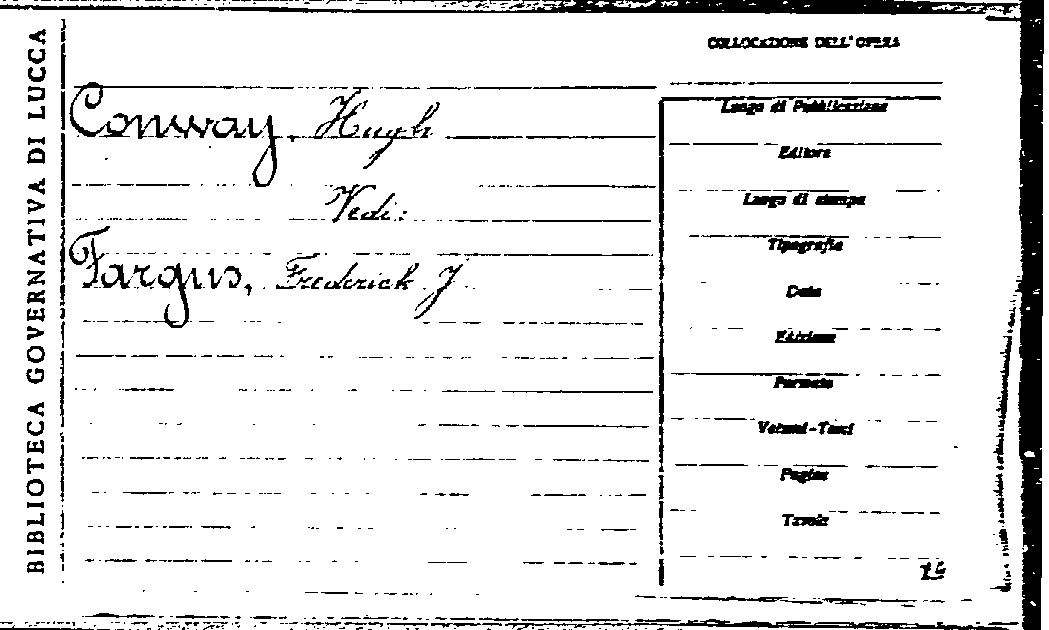 BIBLIOTECA GOVERNATIVA DI LUCCA
COLLOCAZIONE DELL'OPERA
Conway, Hugh
Vedi:
Fargus, Frederick J
Luogo di Pubblicazione
Editore
Luogo di stampa
Tipografia
Data
Edizione
Formato
Volumi-Tomi
Pagine
Tavole